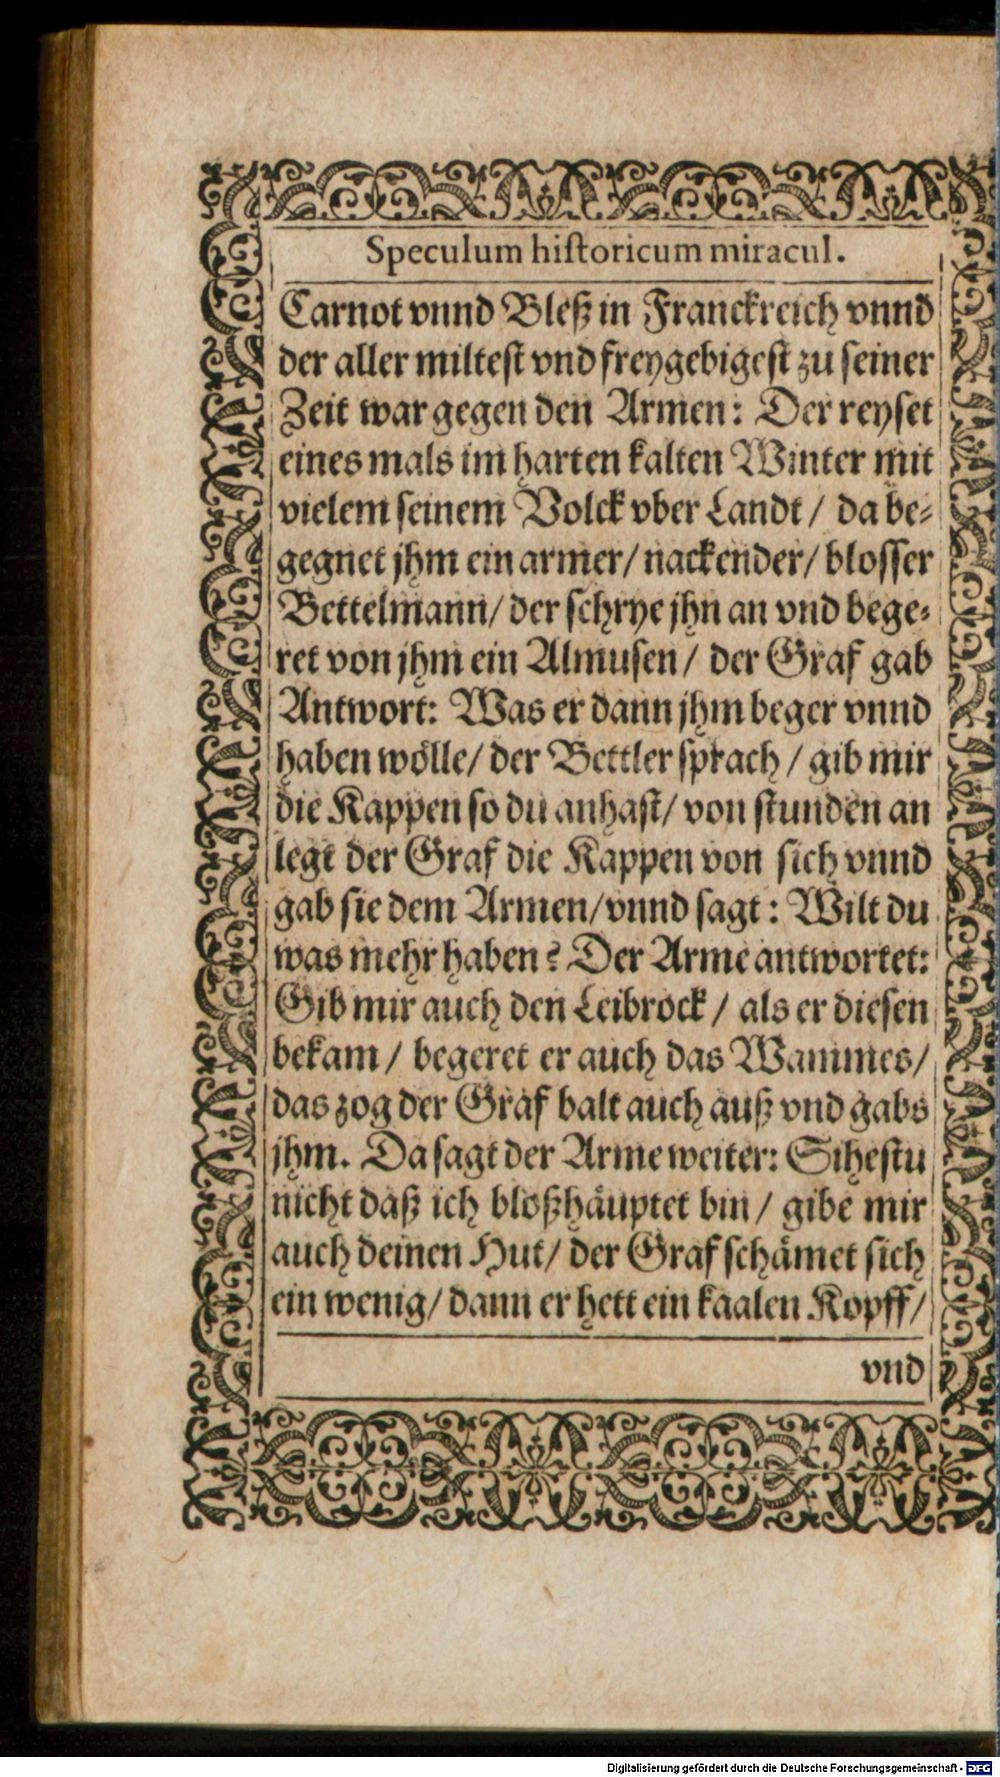 Speculum historicum miracul.
Carnot vnnd Bleß in Franckreich vnnd
der aller miltest vnd freygebigest zu seiner
Zeit war gegen den Armen: Der reyset
eines mals im harten kalten Winter mit
vielem seinem Volck vber Landt / da be-
gegnet jhm ein armer / nackender / blosser
Bettelmann / der schrye jhn an vnd bege-
ret von jhm ein Almusen / der Graf gab
Antwort: Was er dann jhm beger vnnd
haben wölle / der Bettler sprach / gib mir
die Kappen so du anhast / von stunden an
legt der Graf die Kappen von sich vnnd
gab sie dem Armen / vnnd sagt: Wilt du
was mehr haben? Der Arme antwortet:
Gib mir auch den Leibrock / als er diesen
bekam / begeret er auch das Wammes /
das zog der Graf balt auch auß vnd gabs
jhm. Da sagt der Arme weiter: Sihestu
nicht daß ich bloßhäuptet bin / gibe mir
auch deinen Hut / der Graf schämet sich
ein wenig / dann er hett ein kaalen Kopff /
vnd
Digitalisierung gefördert durch die Deutsche Forschungsgemeinschaft - DFG